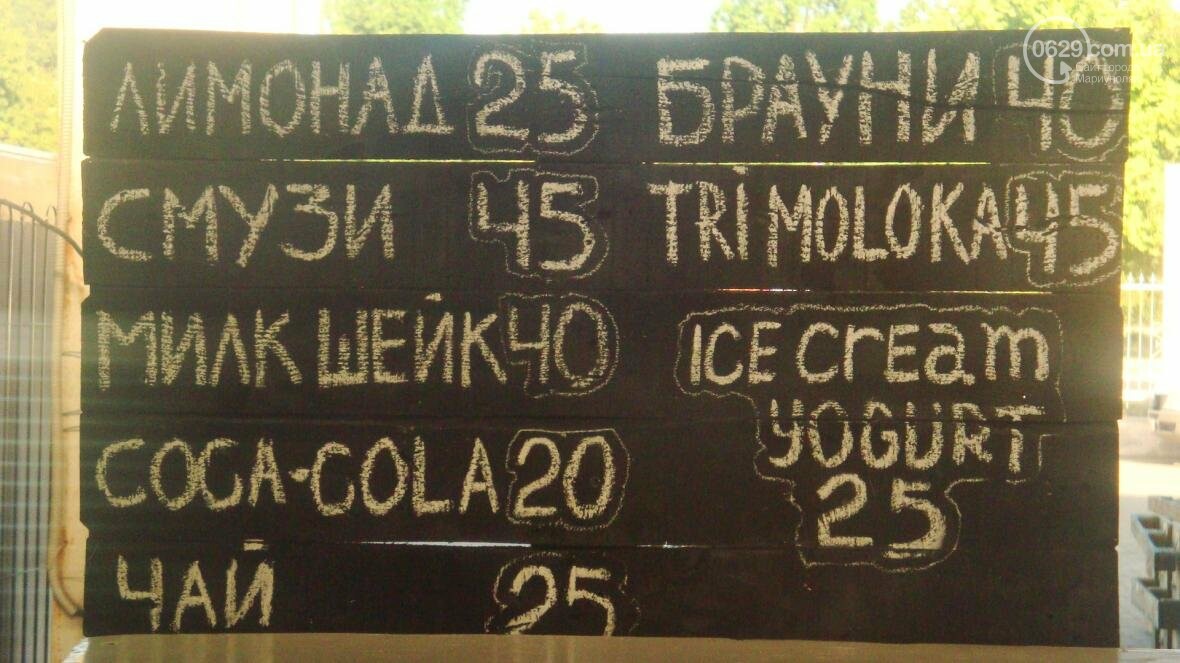 ЛИМОНАД 25
СМУЗИ 45
МИЛК ШЕЙК 40
COCA-COLA 20
ЧАЙ 25
БРАУНИ 40
TRI MOLOKA 45
ICE cream
YOGURT
25
0629.com.ua
Сайт города
Мариуполя